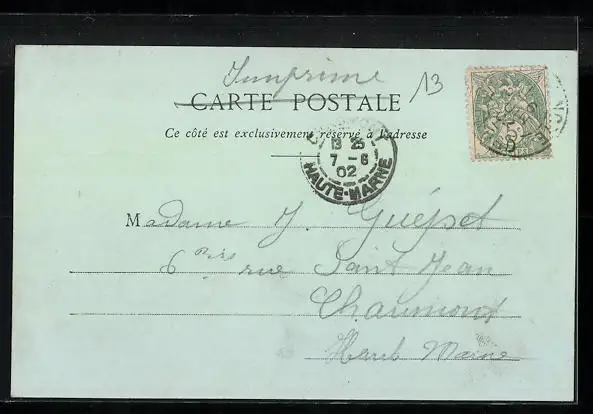 Imprimé
13
CARTE POSTALE
Ce côté est exclusivement réservé à l'adresse
13 25
7 - 6
02
HAUTE-MARNE
Madame J.
6 bis rue Saint Jean
Chaumont
Haute Marne